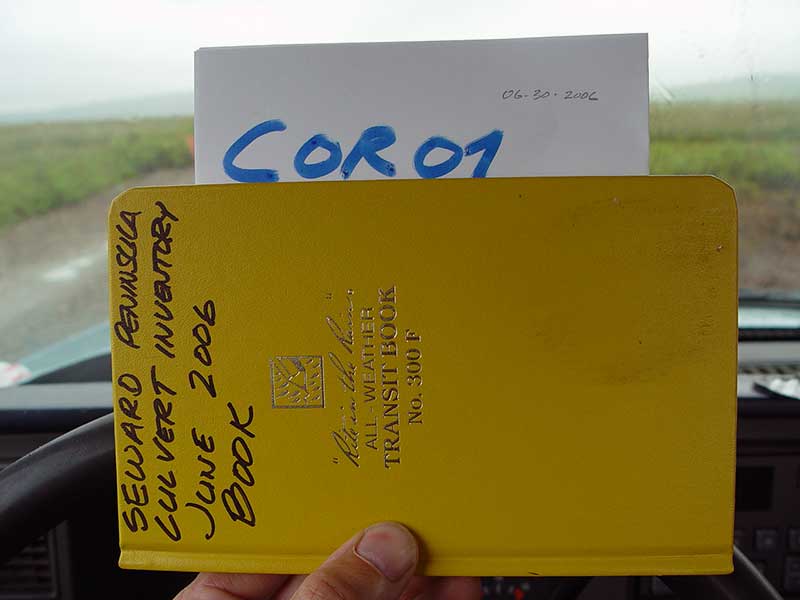 06-30-2006
COR01
SEWARD PENINSULA
CULVERT INVENTORY
JUNE 2006
BOOK
"Rite in the Rain"
ALL-WEATHER
TRANSIT BOOK
No. 300 F